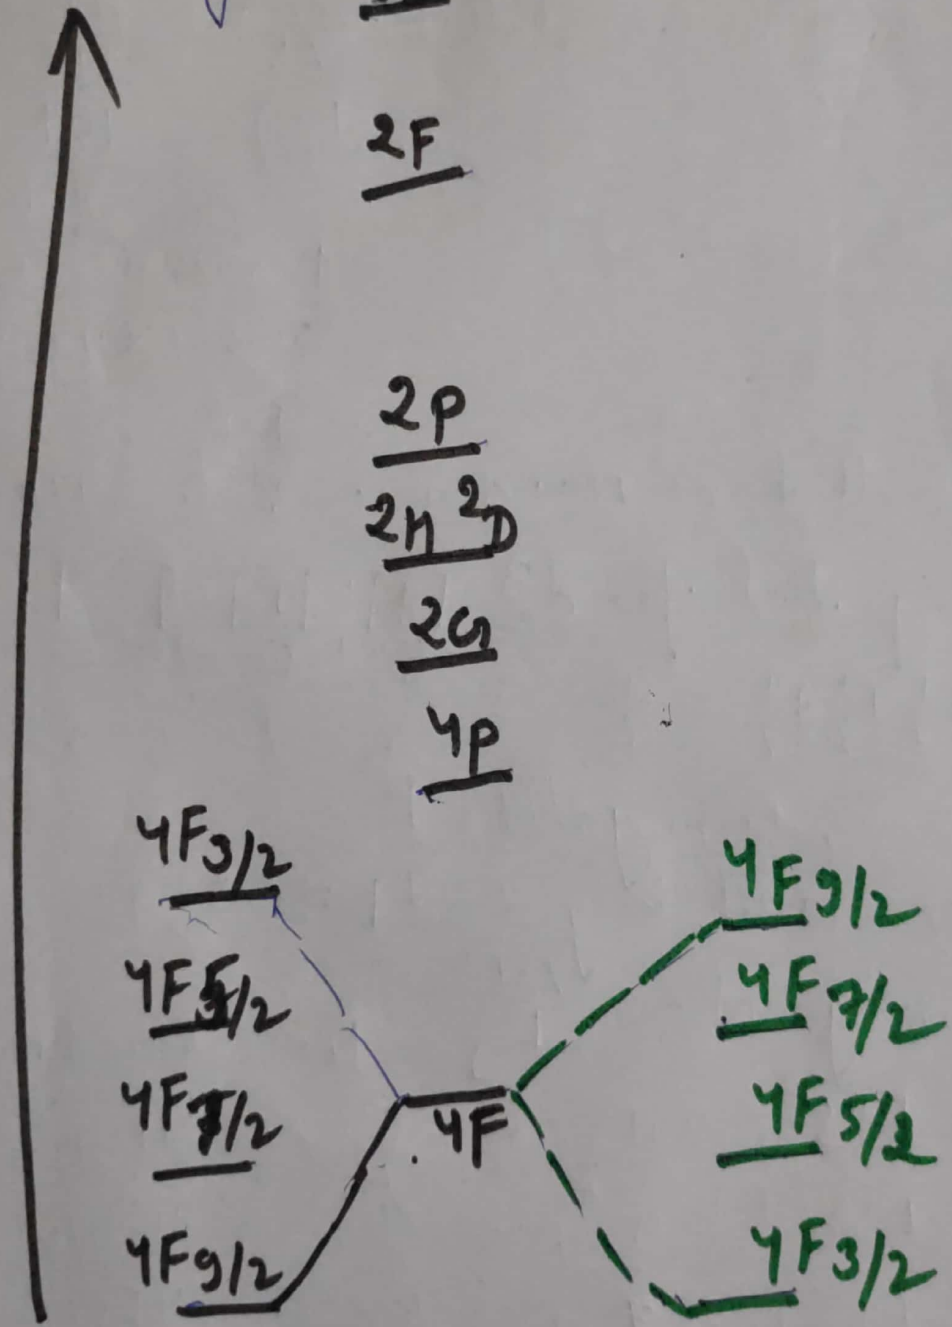 2F
2P
2H 2D
2G
4P
4F3/2
4F9/2
4F5/2
4F7/2
4F7/2
4F5/2
4F
4F9/2
4F3/2